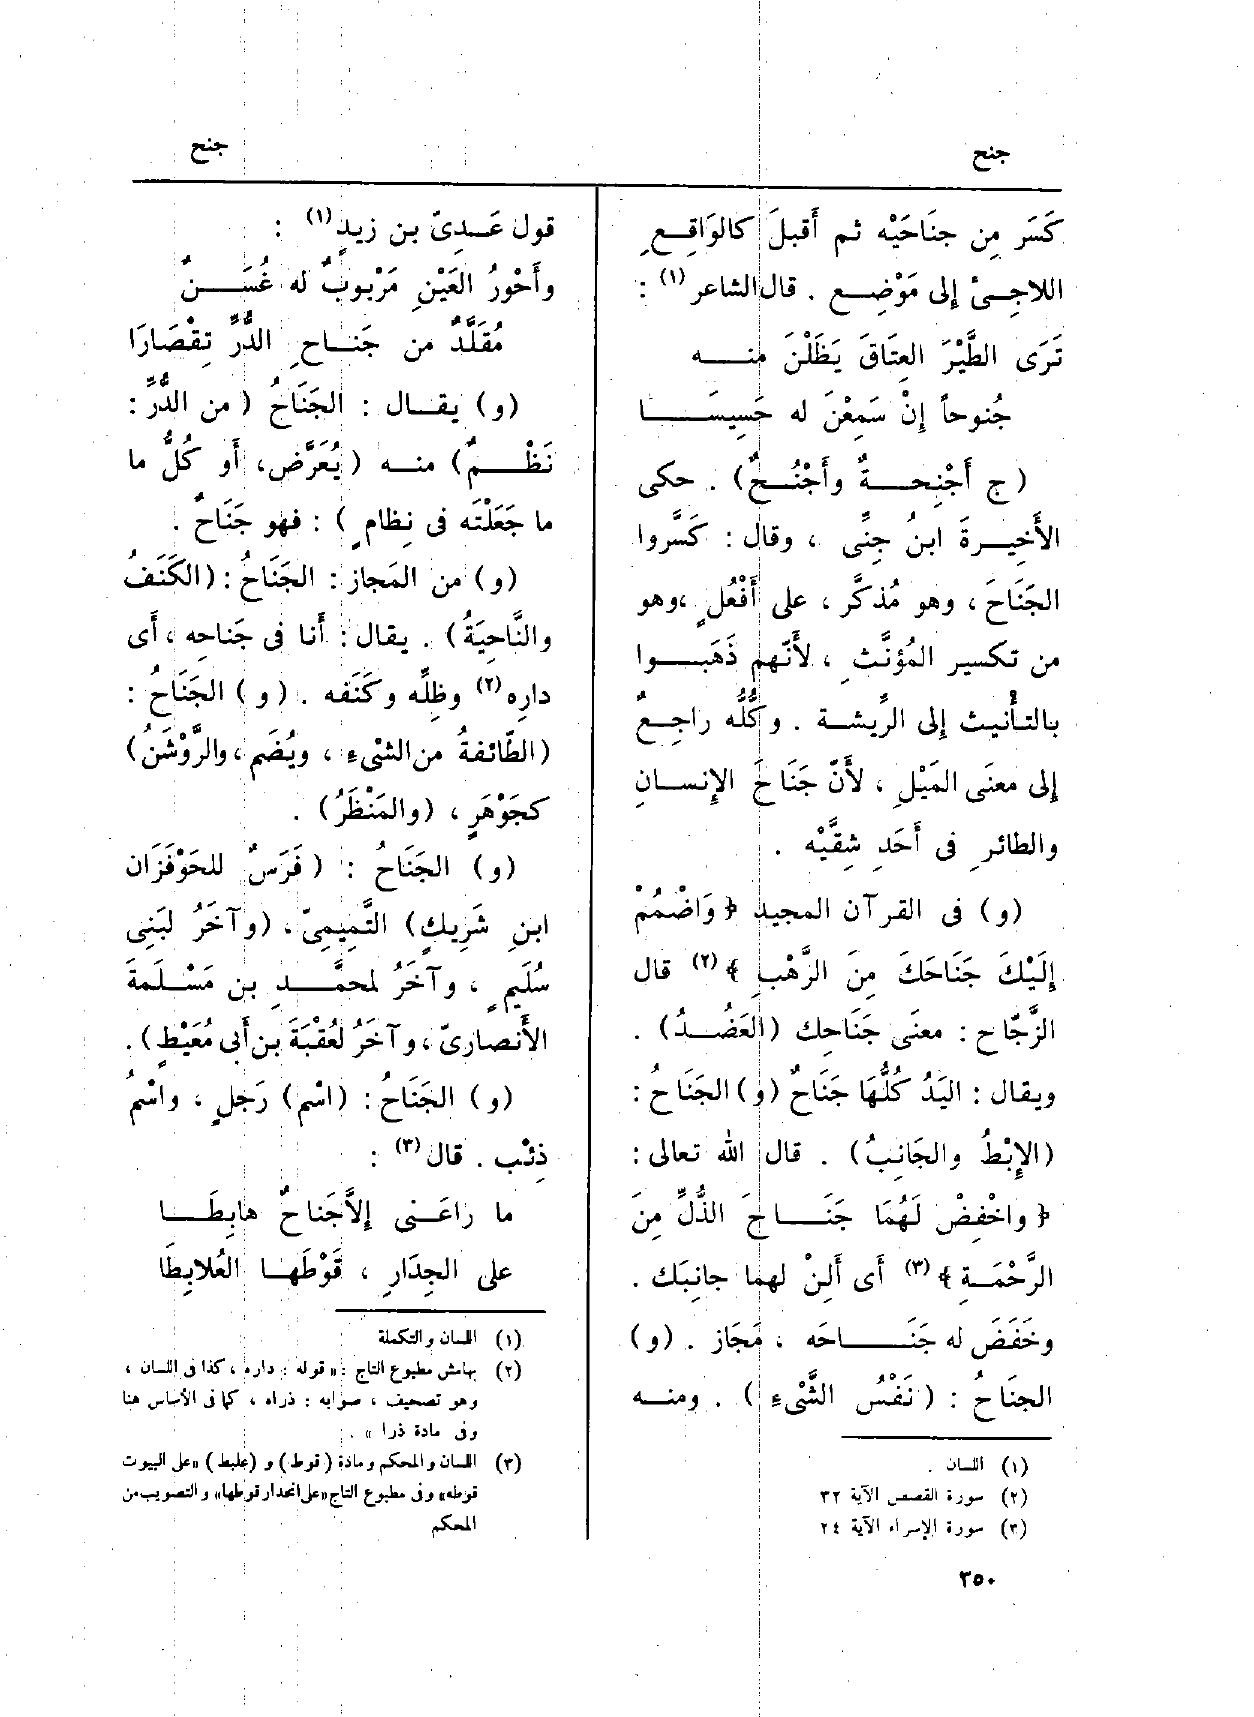 جنح
جنح
كَسَر مِن جنَاحَيْه ثم أَقبلَ كالوَاقِعِ
اللاجِئْ إلى مَوْضِع . قال الشاعر (١) :
تَرَى الطَّيْرَ العِتَاقَ يَظَلْنَ منه
جُنوحاً إنْ سَمِعْنَ له حَسِيسَا
( ج أَجْنِحةٌ وأَجْنُحٌ) . حكى
الأَخِيرةَ ابنُ جِنِّى ، وقال : كَسَّروا
الجَنَاحَ ، وهو مُذكَّر ، على أَفْعُلٍ ، وهو
من تكسير المُؤنَّثِ ، لأَنّهم ذَهَبوا
بالتأْنيث إلى الرِّيشة . وكُلُّه راجِعٌ
إلى معنَى المَيْلِ ، لأَنّ جَنَاحَ الإنسانِ
والطائرِ فى أَحَدِ شِقَّيْه .
(و) فى القرآن المجيد ﴿ وَاضْمُمْ
إِلَيْكَ جَنَاحَكَ مِنَ الرَّهْبِ ﴾ (٢) قال
الزَّجّاج : معنَى جَنَاحِك (العَضُدُ) .
ويقال : اليَدُ كُلُّهَا جَنَاحٌ (و) الجَنَاحُ :
(الإِبْطُ والجَانِبُ) . قال الله تعالى :
﴿ واخْفِضْ لَهُمَا جَنَاحَ الذُّلِّ مِنَ
الرَّحْمَةِ ﴾ (٣) أى أَلِنْ لهما جانِبَك .
وخَفَضَ له جَنَاحَه ، مَجَاز . (و)
الجنَاحُ : ( نَفْسُ الشَّىْءِ ) . ومنه
(١) اللسان .
(٢) سورة القصص الآية ٣٢
(٣) سورة الإسراء الآية ٢٤
قول عَدِىّ بن زيدٍ (١) :
وأَحْورُ العَيْنِ مَرْبوبٌ له غُسَنٌ
مُقَلَّدٌ من جَناحِ الدُّرِّ تِقْصَارَا
(و) يقال : الجَنَاحُ ( من الدُّرِّ :
نَظْمٌ) منه (يُعَرَّض، أَو كُلُّ ما
ما جَعَلْتَه فى نِظامٍ ) : فهو جَنَاحٌ .
(و) من المَجاز : الجَنَاحُ : (الكَنَفُ
والنَّاحِيَةُ) . يقال : أَنا فى جَناحِه ، أَى
دارِه (٢) وظِلِّه وكَنَفه . ( و ) الجَنَاحُ :
(الطّائفةُ من الشىْءِ ، ويُضَم ، والرَّوْشَنُ)
كجَوْهَرٍ ، (والمَنْظَرُ) .
(و) الجَنَاحُ : ( فَرَسٌ للحَوْفَزَان
ابنِ شَرِيكٍ) التَّمِيمِىّ ، (وآخَرُ لبَنِى
سُلَيمٍ ، وآخَرُ لمحمَّدِ بن مَسْلَمةَ
الأَنصارىّ ، وآخَرُ لعُقْبَةَ بن أَبى مُعَيْطٍ) .
(و) الجَنَاحُ : (اسْم) رَجلٍ ، واسْمُ
ذِئْب . قال (٣) :
ما راعَنى إلاَّ جَناحٌ هابِطَا
على الجِدَارِ ، قَوْطَها العُلابِطَا
(١) اللسان والتكملة
(٢) بهامش مطبوع التاج : « قوله : داره ، كذا فى اللسان ،
وهو تصحيف ، صوابه : ذراه ، كما فى الأساس هنا
وفى مادة ذرا » .
(٣) اللسان والمحكم ومادة (قوط) و (علبط) «على البيوت
قوطه» وفى مطبوع التاج «على انحدار قوطها» والتصويب من
المحكم
٣٥٠